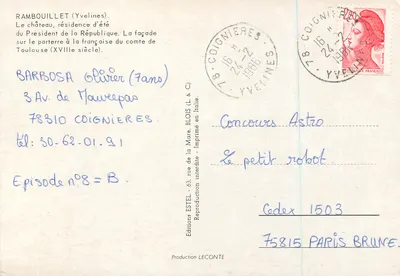 RAMBOUILLET (Yvelines).
Le château, résidence d'été
du Président de la République. La façade
sur le parterre à la française du comte de
Toulouse (XVIIIe siècle).
BARBOSA Olivier (7ans)
3 Av. de Maurepas
78310 COIGNIERES
tél: 30-62-01.91
Episode n°8 = B.
Editions ESTEL - 63, rue de la Mare, BLOIS (L. & C.)
Reproduction interdite - Imprimé en Italie
78 - COIGNIERES
16 H
24-2
1986
YVELINES
78 - COIGNIERES
16 H
24-2
1986
YVELINES
Concours Astro
Le petit robot
Cedex 1503
75815 PARIS BRUNE.
Production LECONTE